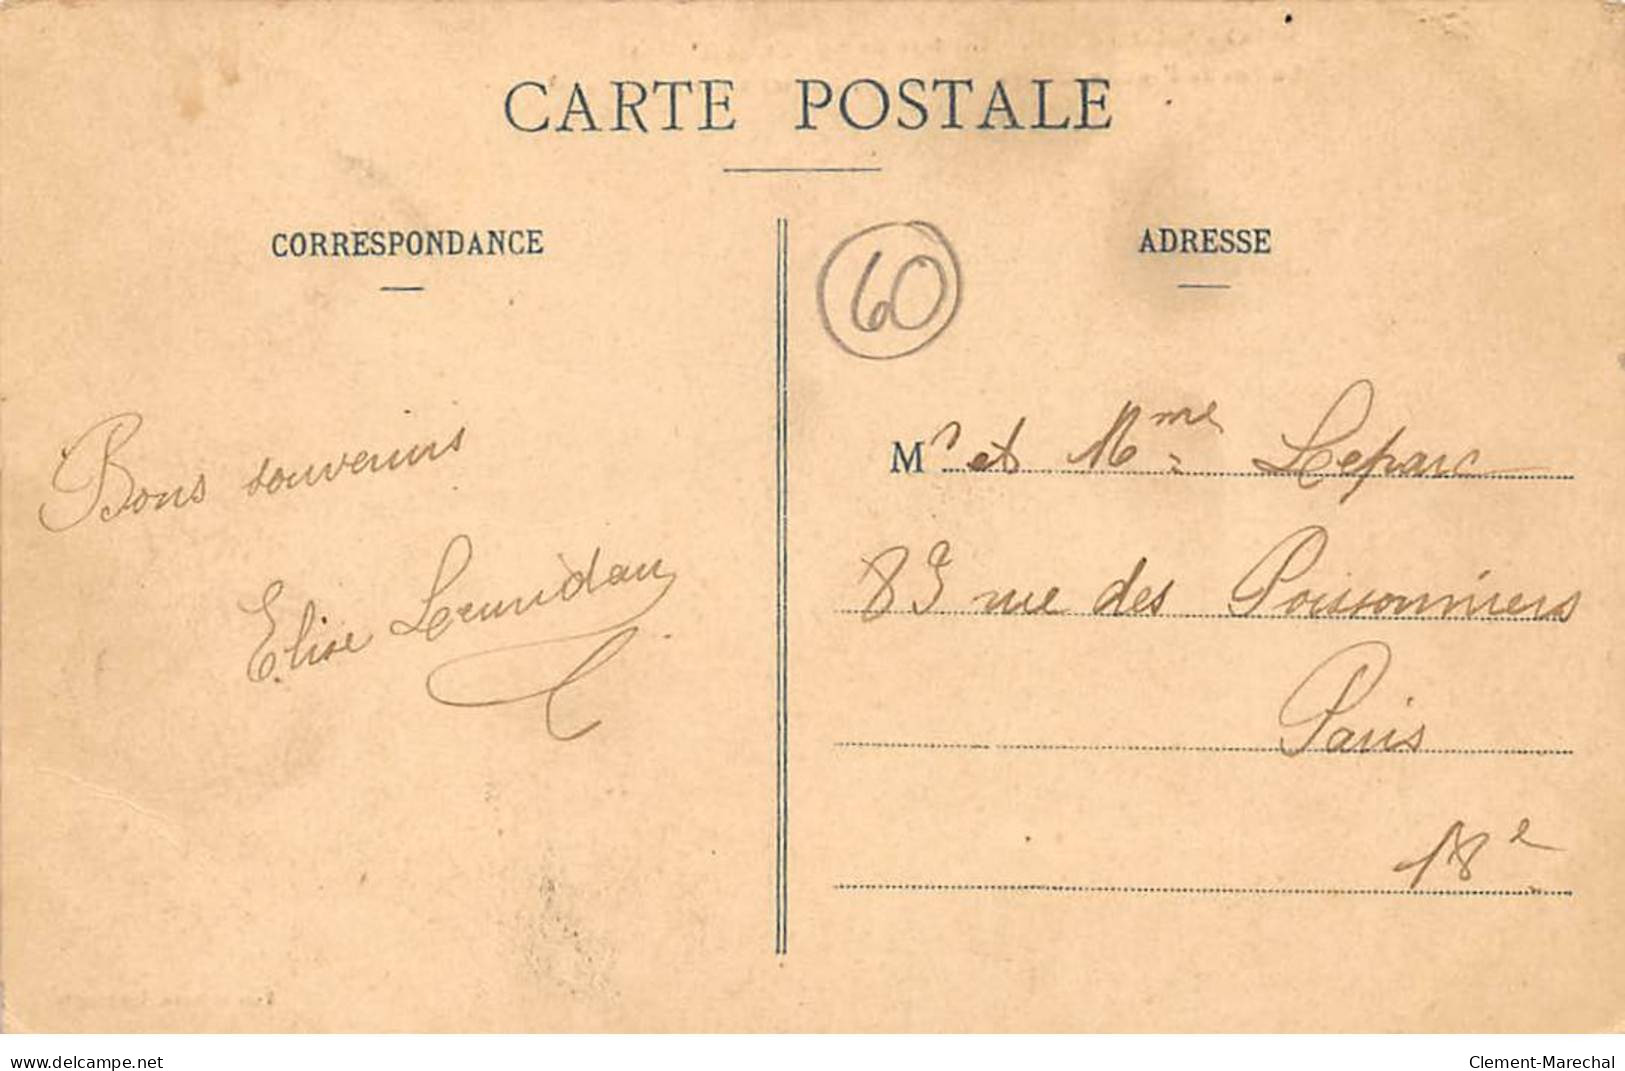 CARTE POSTALE
CORRESPONDANCE
ADRESSE
60
Bons souvenirs
Elise
Mr et Mme Leparc
83 rue des Poissonniers
Paris
18e
delcampe.net
Clement-Marechal